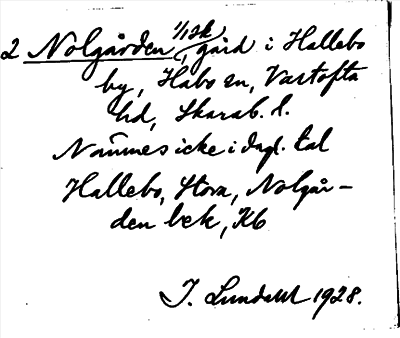 2 Nolgården, 1/12 k, gård i Hallebo
by, Habo sn, Vartofta
hd, Skarab. l.
Namnes icke i dagl. tal
Hallebo, Stora, Nolgår-
den bek, Kb
I. Lundahl 1928.